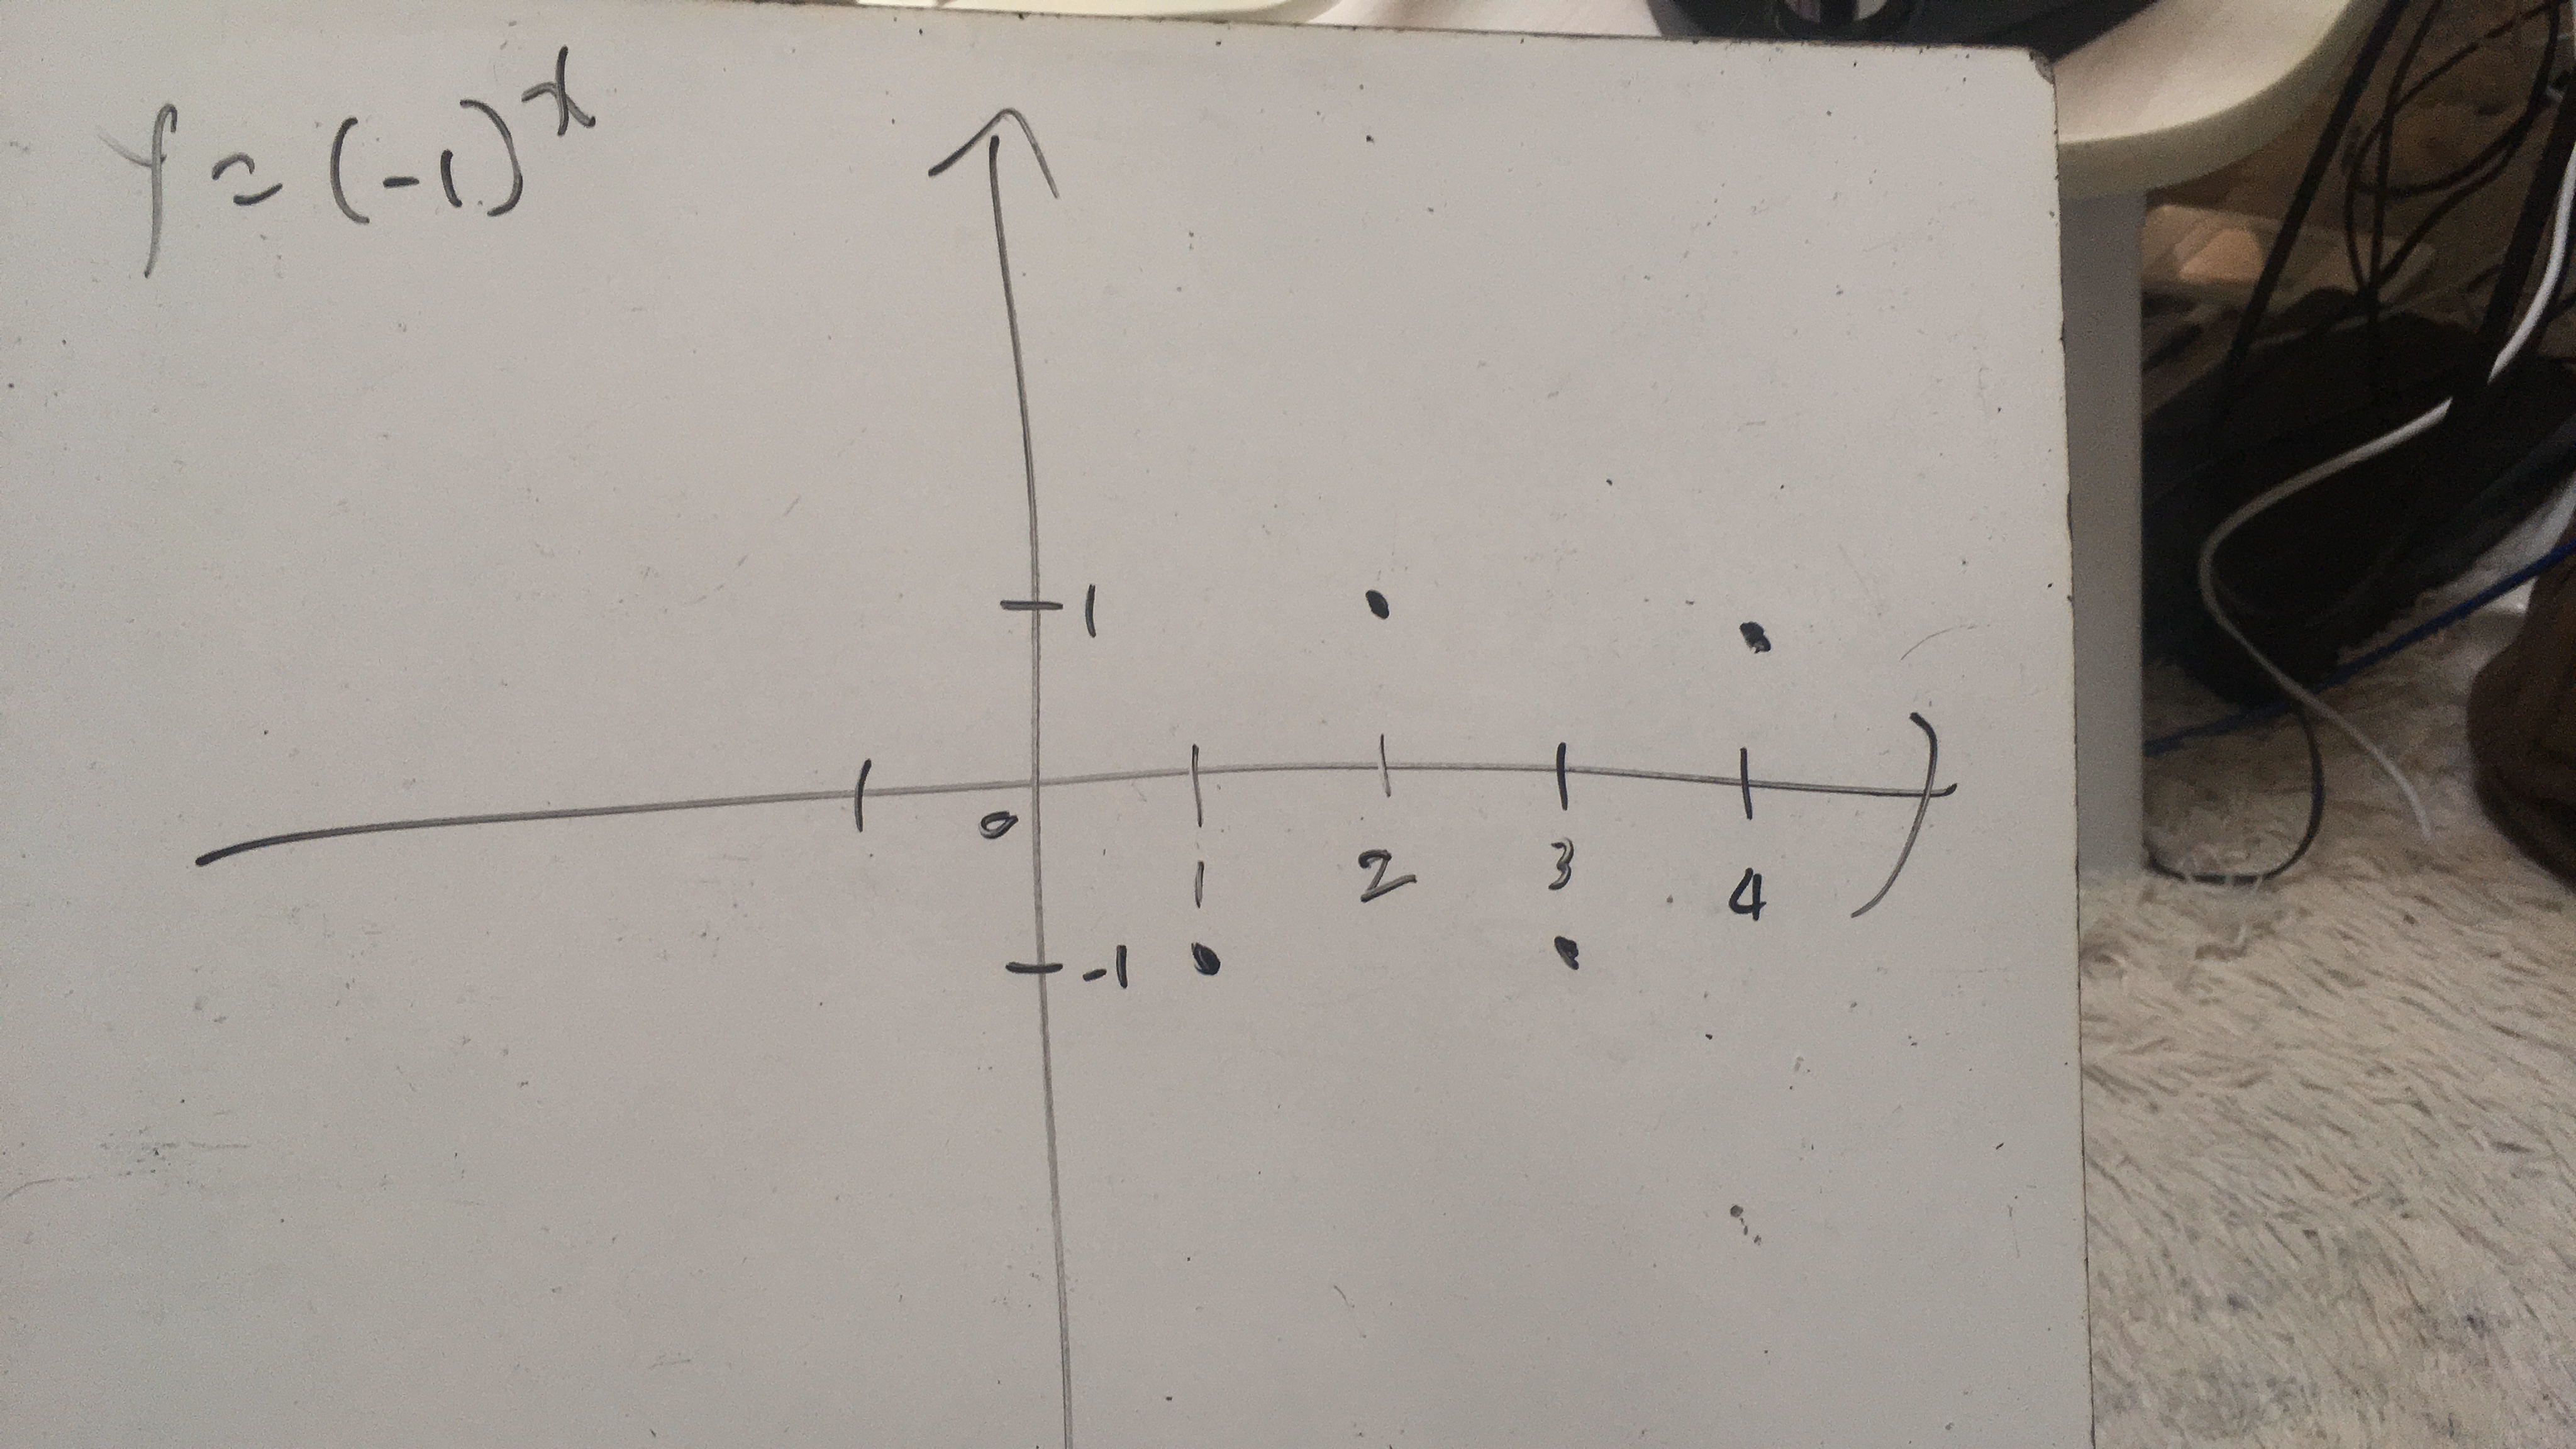 y = (-1)^x
1
0
1 2 3 4
-1